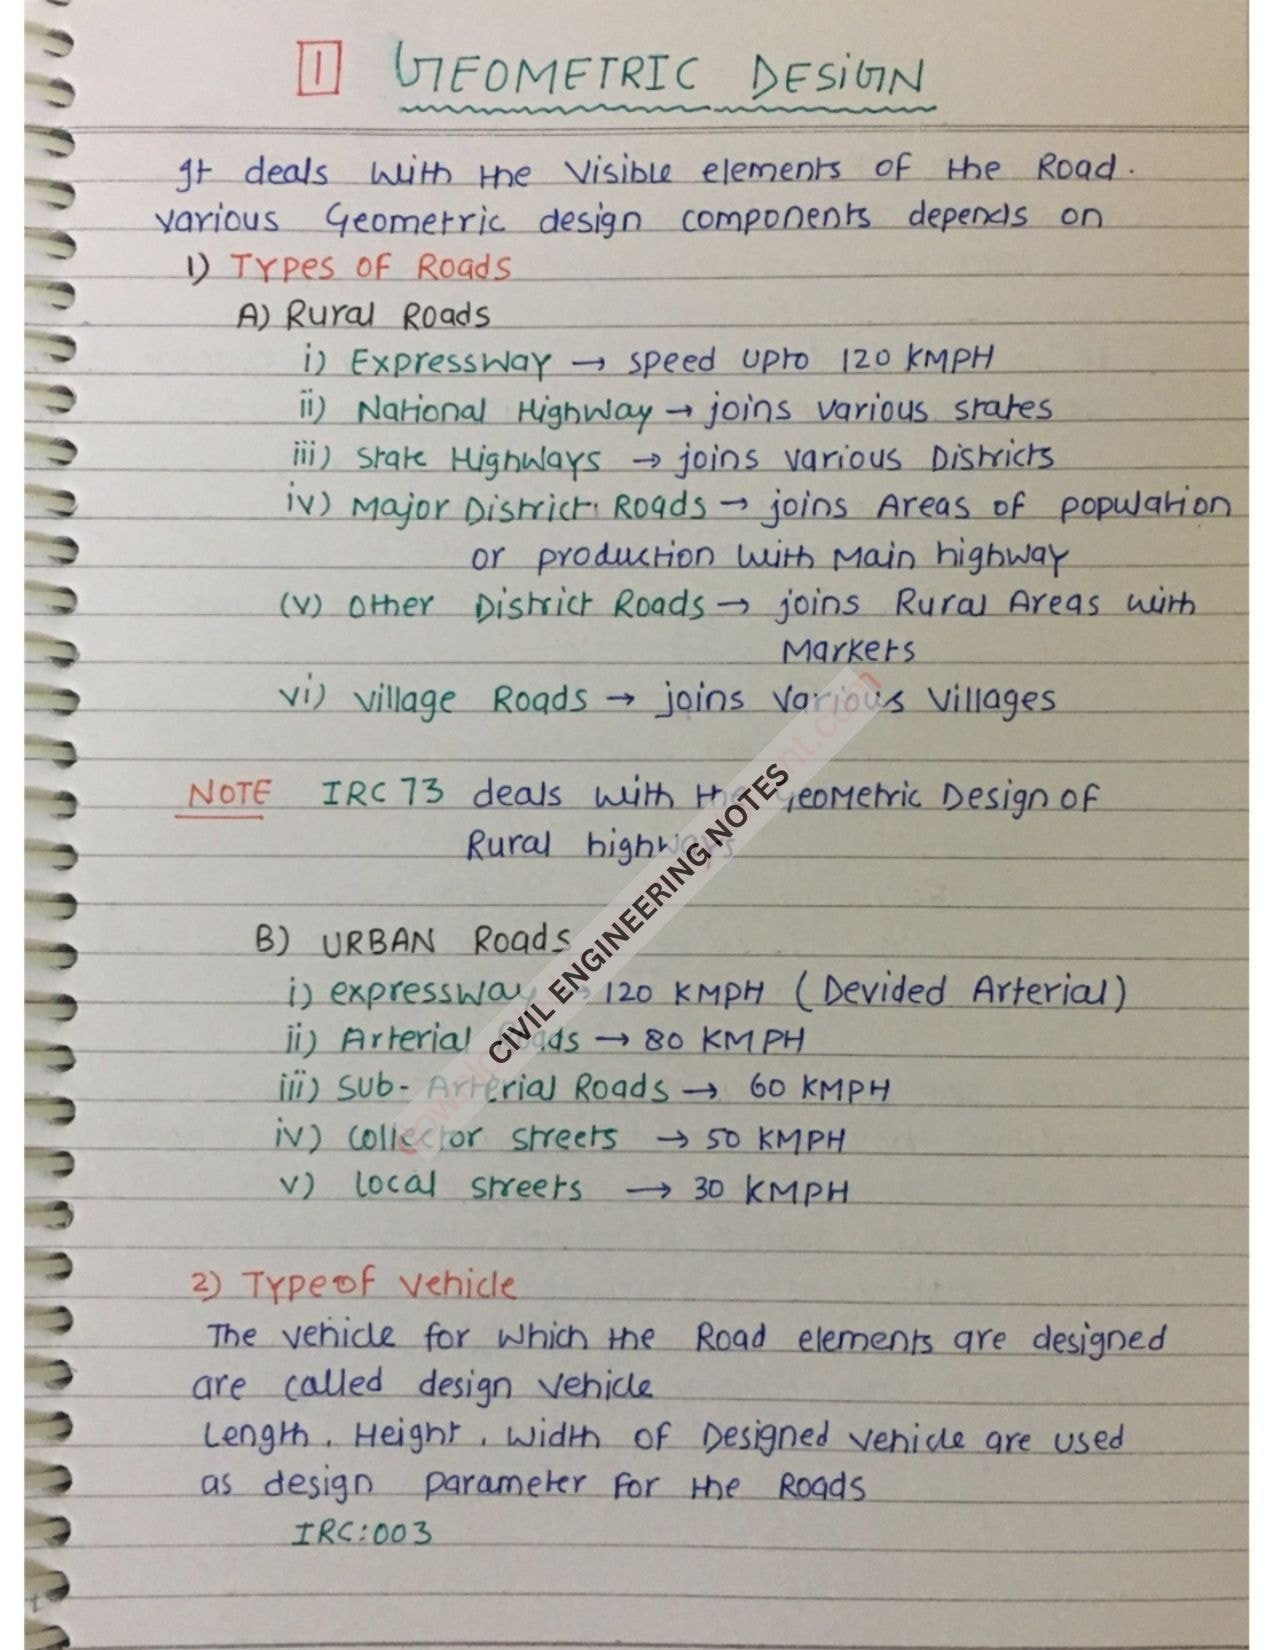 1 GEOMETRIC DESIGN
It deals with the visible elements of the Road.
various Geometric design components depends on
1) Types of Roads
A) Rural Roads
i) Expressway → speed upto 120 KMPH
ii) National Highway → joins various states
iii) State Highways → joins various Districts
iv) Major District Roads → joins Areas of population
or production with Main highway
(v) Other District Roads → joins Rural Areas with
Markets
vi) Village Roads → joins various Villages
NOTE IRC 73 deals with the Geometric Design of
Rural highways
CIVIL ENGINEERING NOTES
B) URBAN Roads
i) expressway → 120 KMPH (Devided Arterial)
ii) Arterial Roads → 80 KMPH
iii) Sub-Arterial Roads → 60 KMPH
iv) Collector streets → 50 KMPH
v) Local streets → 30 KMPH
2) Type of Vehicle
The vehicle for which the Road elements are designed
are called design vehicle
Length, Height, Width of Designed vehicle are used
as design parameter for the Roads
IRC:003